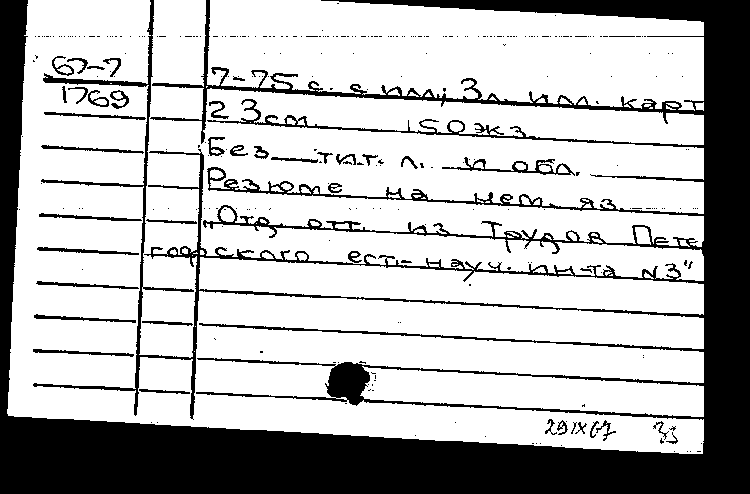 67-7
1769
7-75 с. с илл; 3 л. илл. карт
23 см. 150 экз.
Без тит. л. и обл.
Резюме на нем. яз.
„Отд. отт. из Трудов Петер
гофского ест.-науч. ин-та N3"
29 IX 67